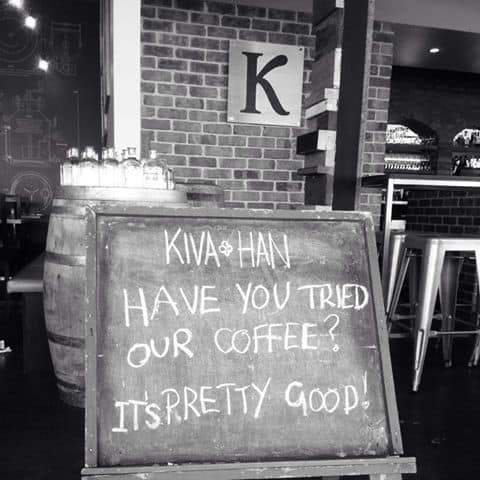 K
KIVA HAN
HAVE YOU TRIED
OUR COFFEE?
IT'S PRETTY GOOD!